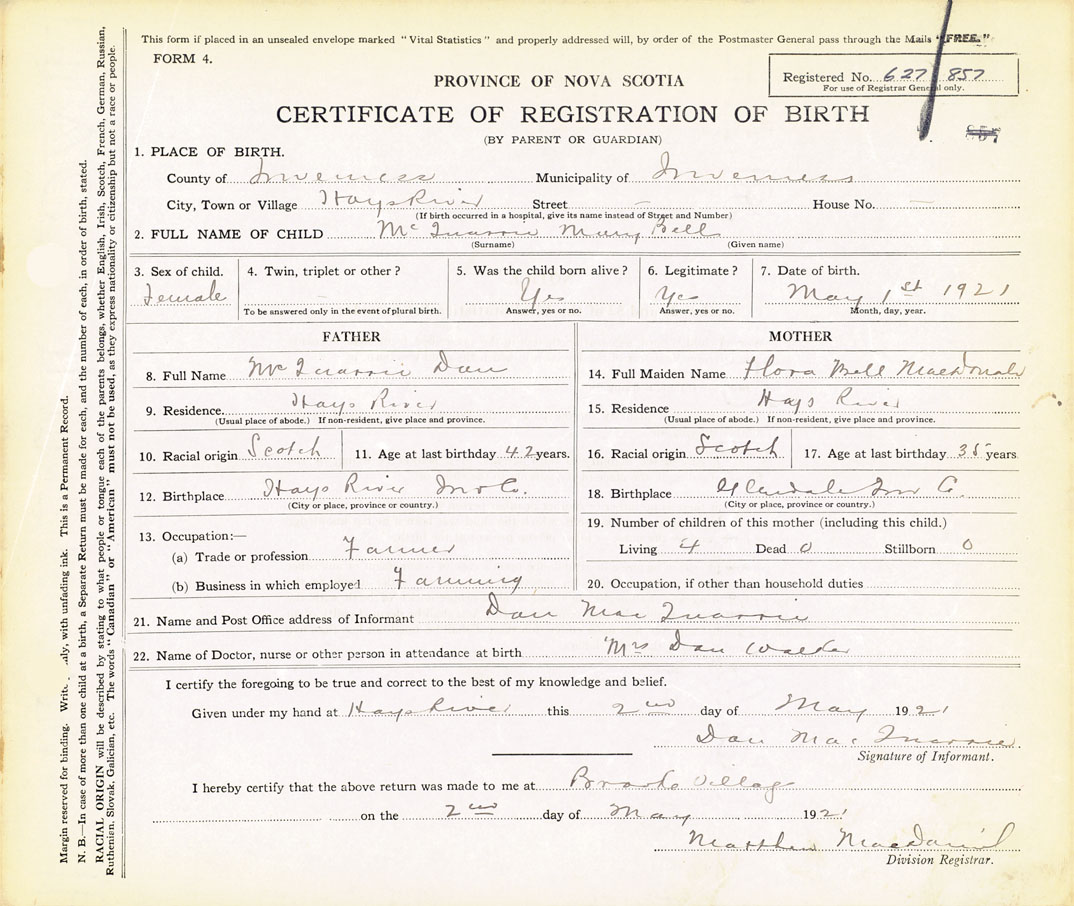 This form if placed in an unsealed envelope marked "Vital Statistics" and properly addressed will, by order of the Postmaster General pass through the Mails "FREE."
FORM 4.
Registered No. 627 857
For use of Registrar General only.
PROVINCE OF NOVA SCOTIA
CERTIFICATE OF REGISTRATION OF BIRTH
857
(BY PARENT OR GUARDIAN)
1. PLACE OF BIRTH.
County of Inverness Municipality of Inverness
City, Town or Village Hays River Street — House No. —
(If birth occurred in a hospital, give its name instead of Street and Number)
2. FULL NAME OF CHILD McQuarrie Mary Bell
(Surname) (Given name)
3. Sex of child. 4. Twin, triplet or other? 5. Was the child born alive? 6. Legitimate? 7. Date of birth.
Female — Yes Yes May 1st 1921
To be answered only in the event of plural birth. Answer, yes or no. Answer, yes or no. Month, day, year.
FATHER MOTHER
8. Full Name McQuarrie Dan 14. Full Maiden Name Flora Bell Macdonald
9. Residence. Hays River 15. Residence Hays River
(Usual place of abode.) If non-resident, give place and province. (Usual place of abode.) If non-resident, give place and province.
10. Racial origin Scotch 11. Age at last birthday 42 years. 16. Racial origin Scotch 17. Age at last birthday 35 years
12. Birthplace Hays River Inv Co. 18. Birthplace Glendale Inv Co.
(City or place, province or country.) (City or place, province or country.)
13. Occupation:— 19. Number of children of this mother (including this child.)
(a) Trade or profession Farmer Living 4 Dead 0 Stillborn 0
(b) Business in which employed Farming 20. Occupation, if other than household duties
21. Name and Post Office address of Informant Dan MacQuarrie
22. Name of Doctor, nurse or other person in attendance at birth Mrs Dan Walker
I certify the foregoing to be true and correct to the best of my knowledge and belief.
Given under my hand at Hays River this 2nd day of May 1921
Dan MacQuarrie
Signature of Informant.
I hereby certify that the above return was made to me at Brook Village
on the 2nd day of May 1921
Matthew Macdaniel
Division Registrar.
Margin reserved for binding. Write only, with unfading ink. This is a Permanent Record.
N. B.—In case of more than one child at a birth, a Separate Return must be made for each, and the number of each, in order of birth, stated.
RACIAL ORIGIN will be described by stating to what people or tongue each of the parents belongs, whether English, Irish, Scotch, French, German, Russian,
Ruthenian, Slovak, Galician, etc. The words "Canadian" or "American" must not be used, as they express nationality or citizenship but not a race or people.